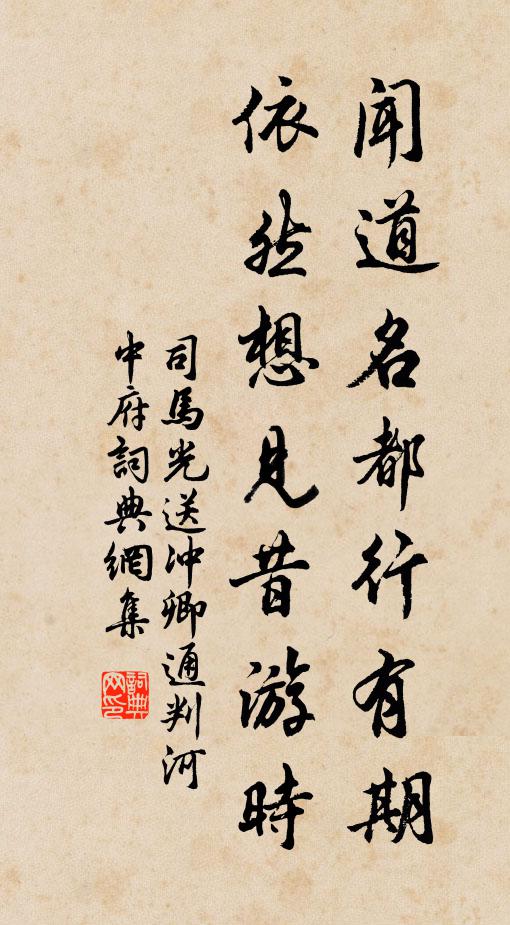 聞道名都行有期
依然想見昔游時
司馬光送沖卿通判河
中府詞典網集
詞典
网印